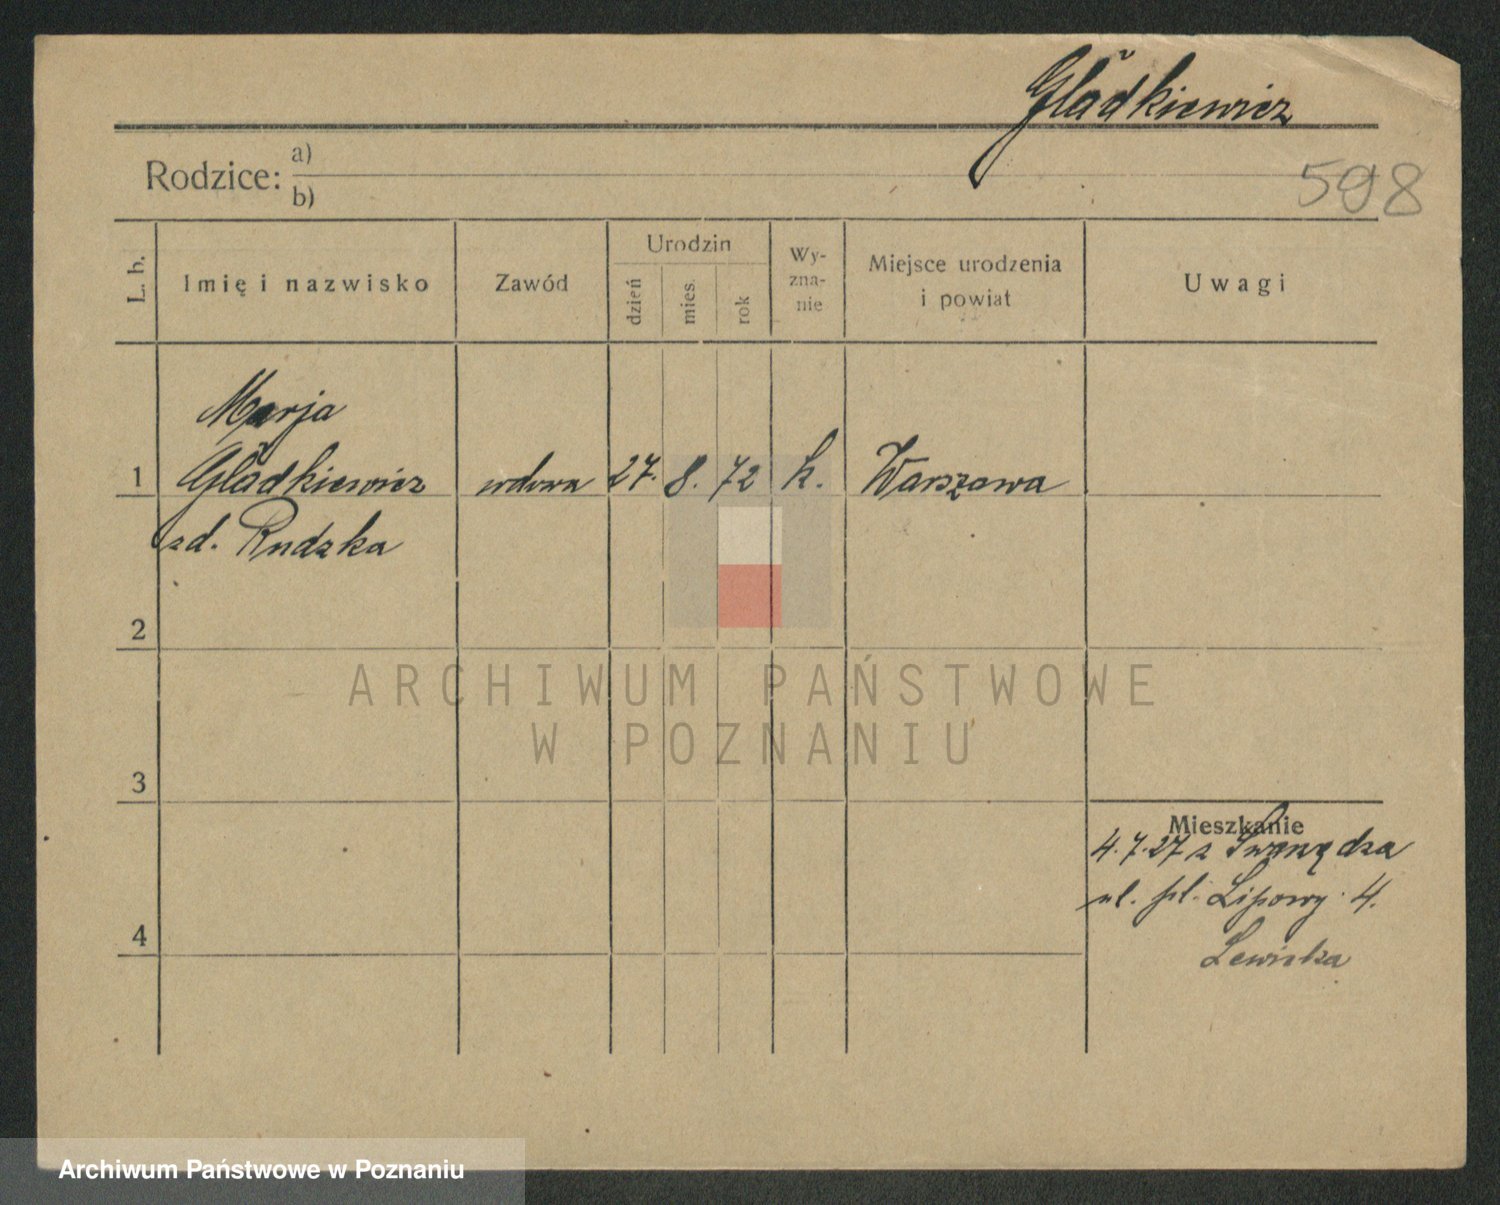 Gładkiewicz
Rodzice: a)
b)
598
L. b.
Imię i nazwisko
Zawód
Urodzin
dzień
mies.
rok
Wy-
zna-
nie
Miejsce urodzenia
i powiat
Uwagi
Marja
1 Gładkiewicz wdowa 27. 8. 72 k. Warszawa
zd. Rudzka
2
ARCHIWUM PAŃSTWOWE
W POZNANIU
3
Mieszkanie
4.7.27 z Swarzędza
ul. pl. Lipowy 4.
4
Lewicka
Archiwum Państwowe w Poznaniu